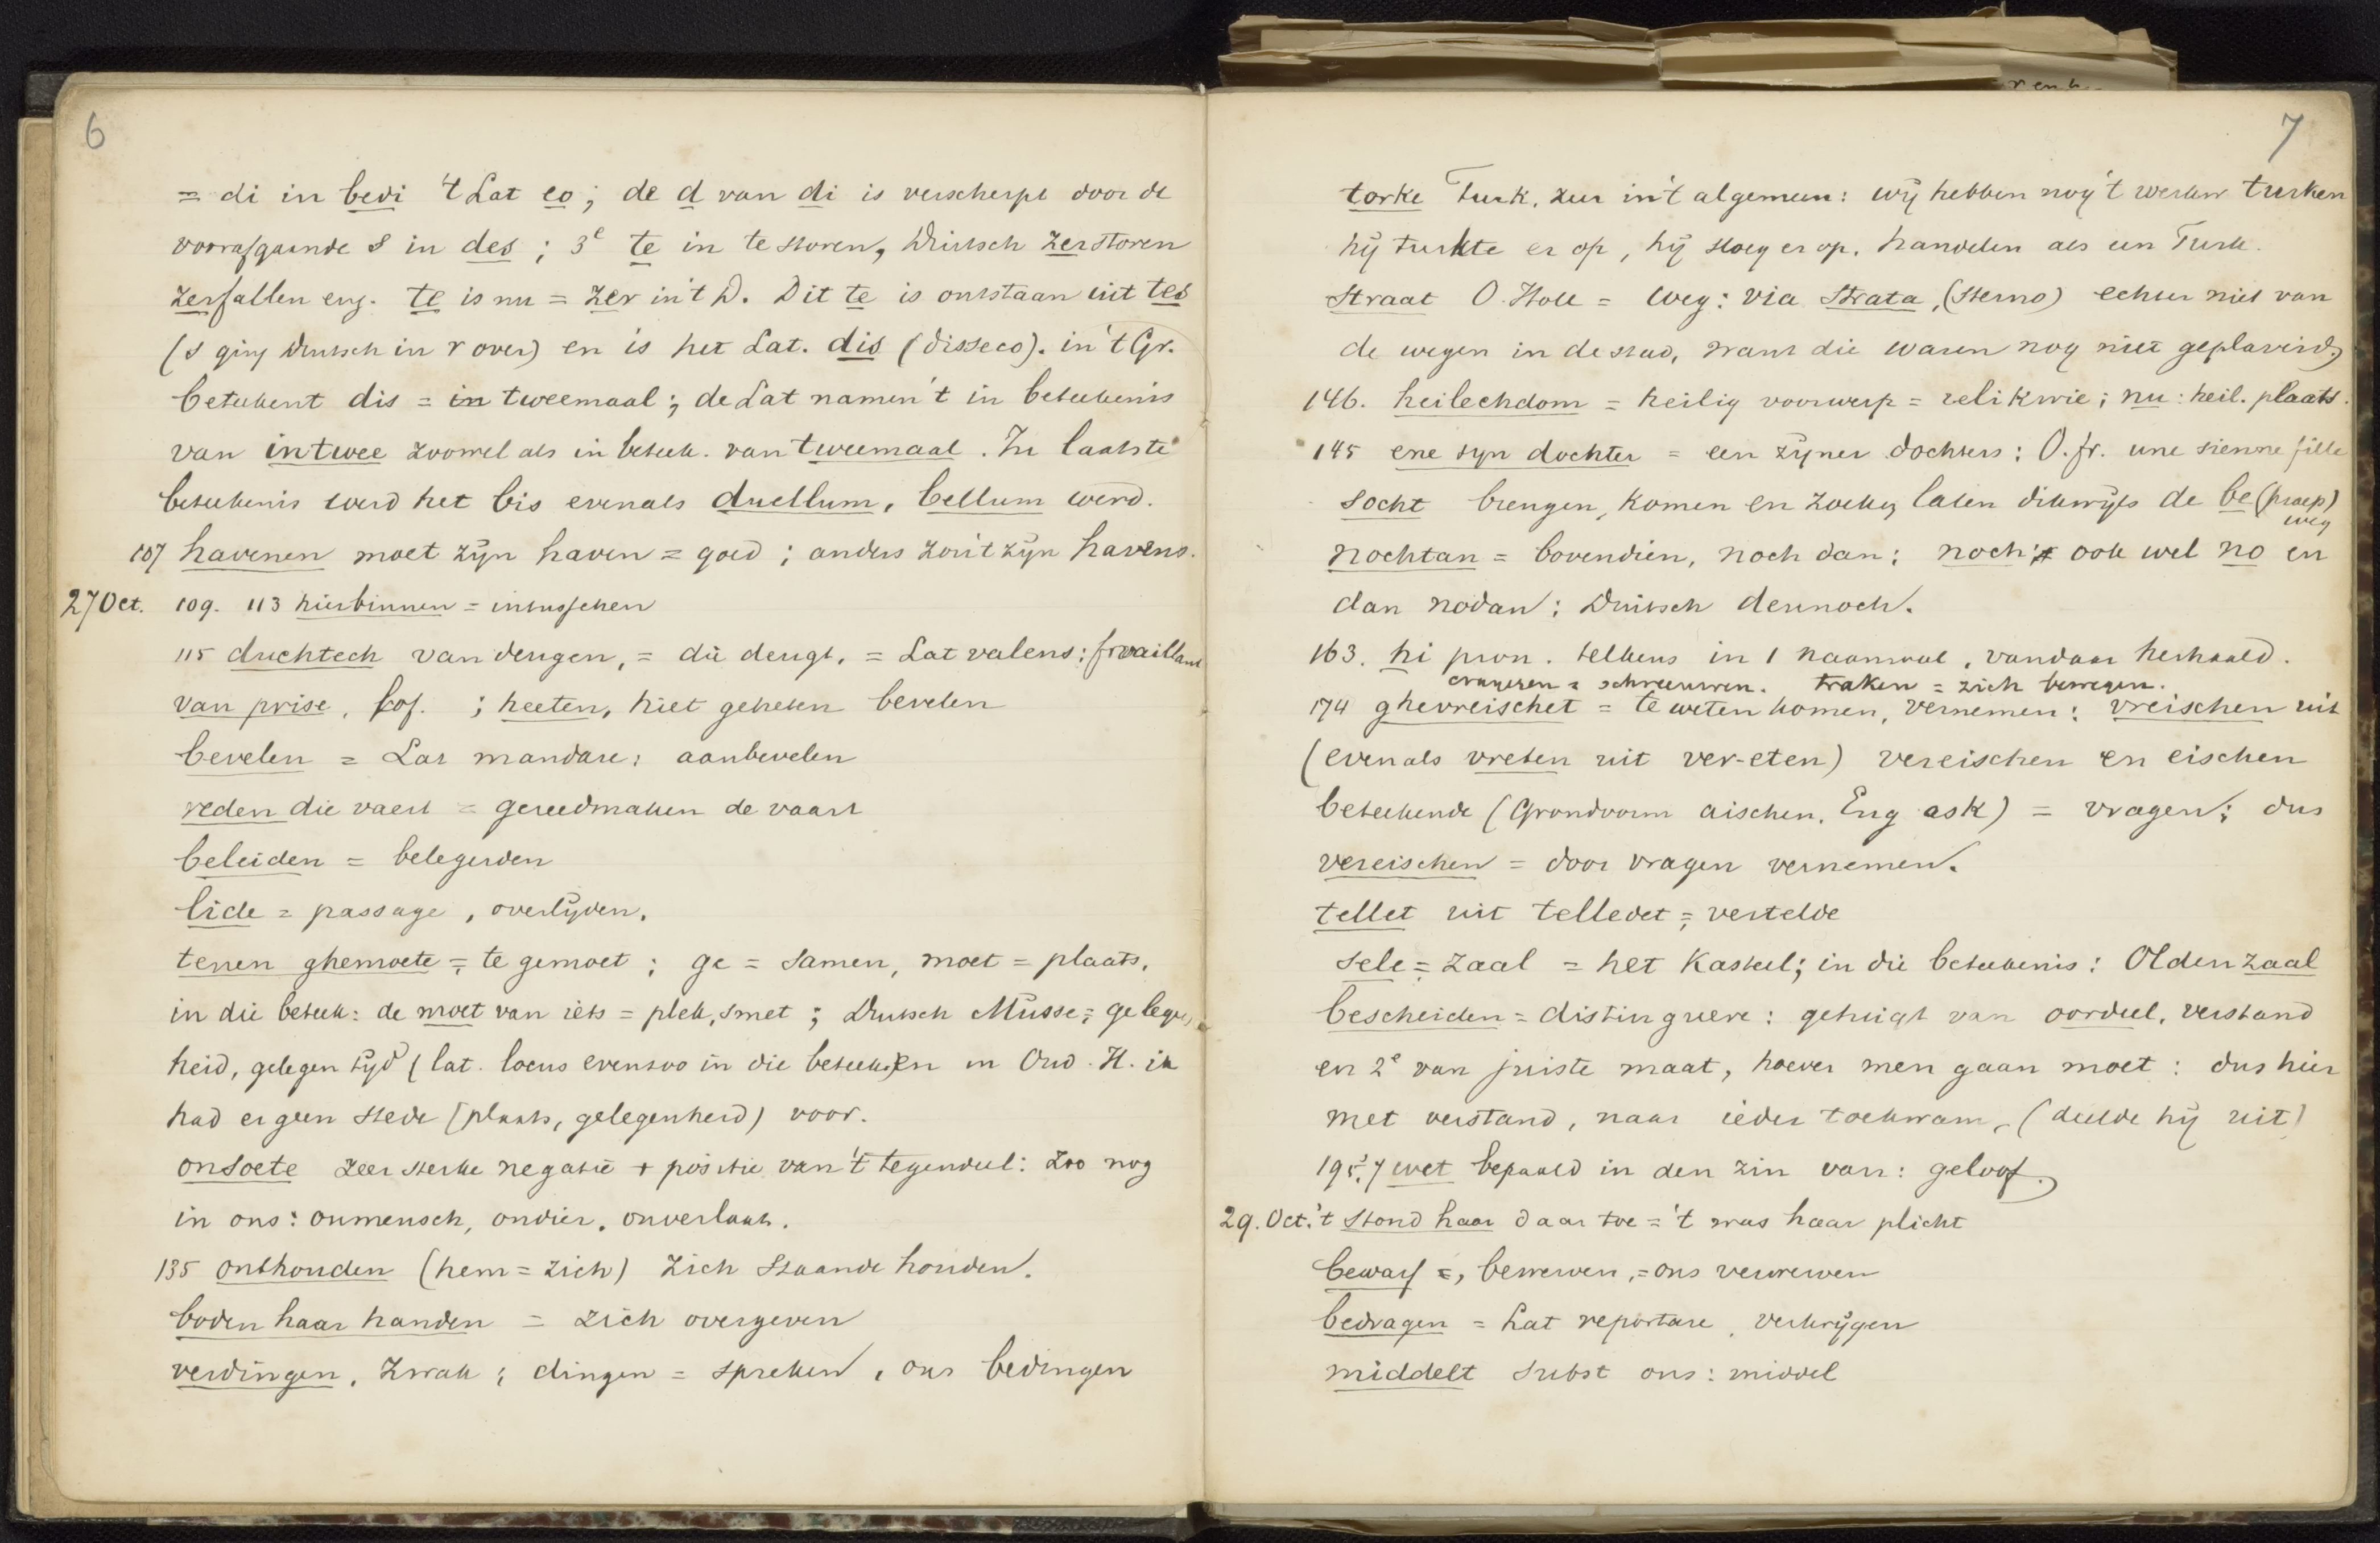 6
= di in bedi 't Lat eo; de d van di is verscherpt door de
voorafgaande s in des; 3e te in te storen, Duitsch zerstoren
zerfallen enz. te is nu = zer in 't D. Dit te is ontstaan uit tes
(s ging Duitsch in r over) en is het Lat. dis (disseco). in 't Gr.
beteekent dis = in tweemaal; de Lat namen 't in beteekenis
van intwee zoowel als in beteek. van tweemaal. In laatste
beteekenis werd het bis evenals duellum, bellum werd.
107 havenen moet zijn haven = goed; anders zou 't zijn havens.
27 Oct. 109. 113 hierbinnen = intusschen
115 duchtech van deugen, = die deugt, = Lat valens; fr vaillant
van prise, lof. ; heeten, hiet geheten bevelen
bevelen = Lat mandare: aanbevelen
reden die vaert = gereedmaken de vaart
beleiden = belegerden
lide = passage, overlijden.
tenen ghemoete = te gemoet; ge = samen, moet = plaats,
in die beteek: de moet van iets = plek, smet; Duitsch Müsse = gelegen
heid, gelegen tijd (lat. locus evenzoo in die beteek) en in Oud. H. ik
had er geen stede (plaats, gelegenheid) voor.
onsoete zeer sterke negatie + positie van 't tegendeel: Zoo nog
in ons: onmensch, ondier, onverlaat.
135 onthouden (hem = zich) zich staande houden.
boden haar handen = zich overgeven
verdingen, zwak; dingen = spreken, ons bedingen
7
torke Turk, zeer in 't algemeen: wij hebben nog 't werkw turken
hij turkte er op, hij sloeg er op. handelen als een Turk.
straat O. Holl = weg: via strata, (sterno) echter niet van
de wegen in de stad, want die waren nog niet geplaveid.
146. heilechdom = heilig voorwerp = relikwie; nu: heil. plaats.
145 ene syn dochter = een zijner dochters: O. fr. une sienne fille
socht brengen, komen en zoeken laten dikwijls de be (praep)
weg
nochtan = bovendien, noch dan: noch ook wel no en
dan nodan: Duitsch dennoch.
163. hi pron. telkens in 1 naamval, vandaar herhaald.
= schreeuwen. traken = zich bewegen.
174 ghevreischet = te weten komen, vernemen: vreischen uit
(evenals vreten uit ver-eten) vereischen en eischen
beteekende (Grondvorm aischen. Eng ask) = vragen: dus
vereischen = door vragen vernemen.
tellet uit telledet = vertelde
sele = zaal = het kasteel; in die beteekenis: Oldenzaal
bescheiden = distinguere: getuigt van oordeel, verstand
en 2e van juiste maat, hoever men gaan moet: dus hier
met verstand, naar ieder toekwam, (deelde hij uit)
195.7 wet bepaald in den zin van: geloof.
29. Oct. 't stond haar daar toe = 't was haar plicht
bewarf =, bewerven, = ons verwerven
bedragen = Lat reportare, verkrijgen
middelt subst ons: middel